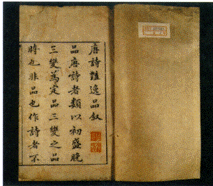 唐詩惟逸品敘
品唐詩者類以初盛晚
三變為定品三變之品
時也非品也作詩者不